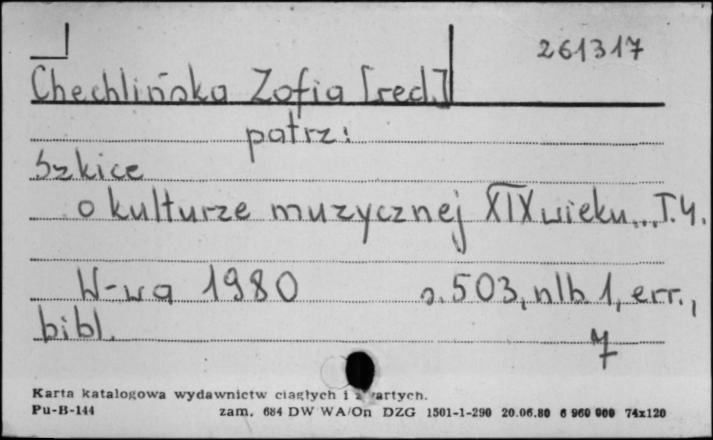 261317
Chechlińska Zofia [red.]
patrz:
Szkice
o kulturze muzycznej XIX wieku... T.4.
W-wa 1980 s. 503, nlb 1, err.,
bibl.
7
Karta katalogowa wydawnictw ciągłych i zwartych.
Pu-B-144 zam. 684 DW WA/On DZG 1501-1-290 20.06.80 6 960 000 74x120